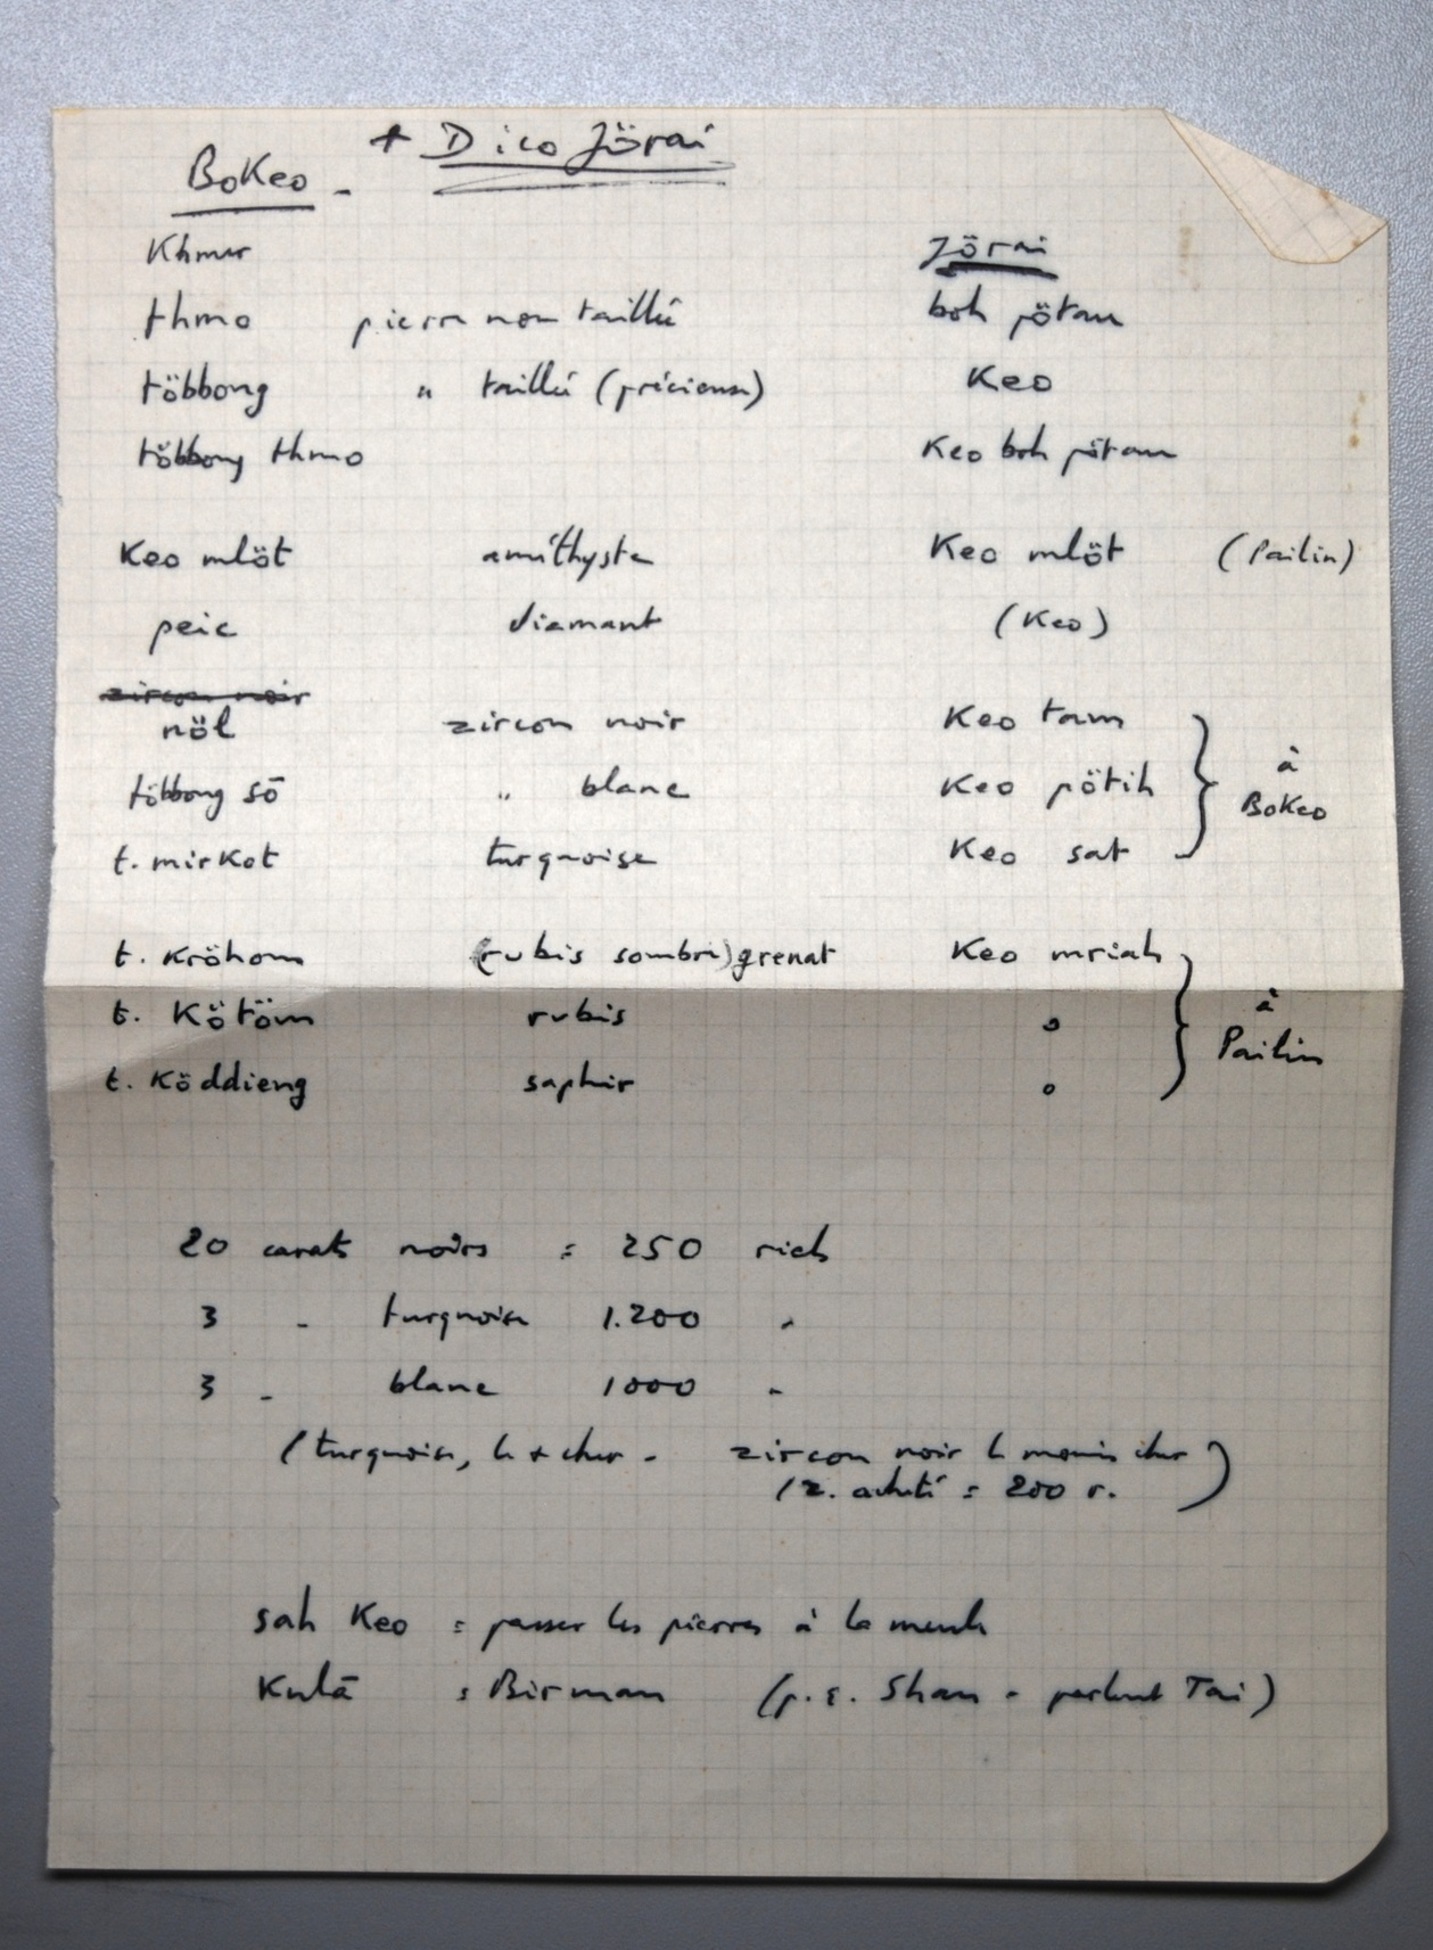 + Dico Jörai
BoKeo -
Khmer Jörai
thmo pierre non taillée boh pötau
többong " taillée (précieuse) Keo
többong thmo Keo boh pötau
Keo mlöt améthyste Keo mlöt (Pailin)
peic diamant (Keo)
zircon noir
nöl zircon noir Keo tam
többong sō " blanc Keo pötih
t. mirkot turquoise Keo sat
à BoKeo
t. Kröhom (rubis sombre) grenat Keo mriah
t. Kötöm rubis o
t. Köddieng saphir o
à Pailin
20 carats noirs = 250 riels
3 - turquoise 1.200 "
3 - blanc 1000 "
(turquoise, le + cher - zircon noir le moins cher
(z. acheté = 200 r. )
sah Keo = passer les pierres à la meule
Kulā = Birman (p.ê. Shan - parlent Tai)